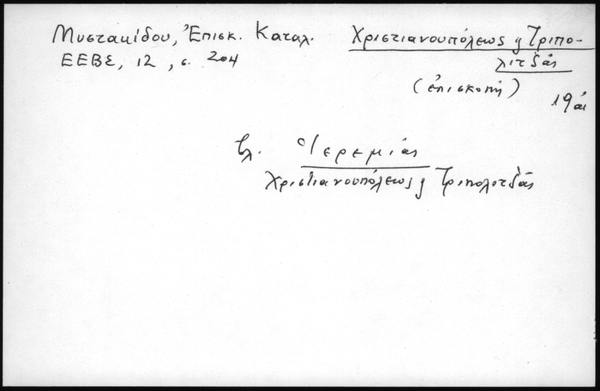 Μυστακίδου, Ἐπισκ. Καταλ.
ΕΕΒΣ, 12, σ. 204
Χριστιανουπόλεως ἤ Τριπο-
λιτζᾶς
(ἐπισκοπή)
19 αἰ
βλ. Ἱερεμίας
Χριστιανουπόλεως ἤ Τριπολιτζᾶς